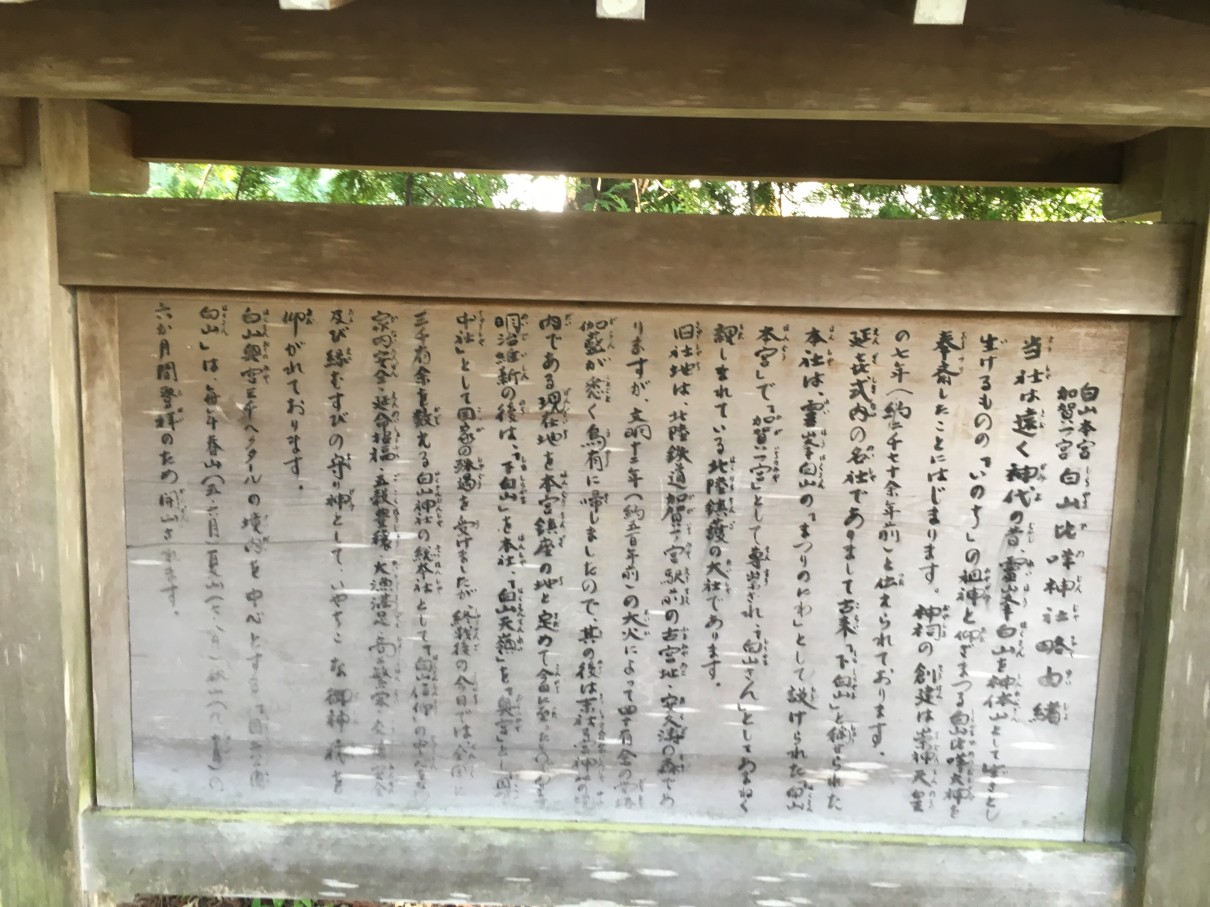 白山本宮
加賀一ノ宮 白山比咩神社略由緒
当社は遠く神代の昔、霊峰白山を神体山として生きとし
生けるものの「いのち」の祖神と仰ぎまつる白山比咩大神を
奉斎したことにはじまります。神祠の創建は崇神天皇
の七年(約二千七十余年前)と伝えられております。
延㐂式内の名社でありまして古来「下白山」と称せられた
本社は、霊峯白山の「まつりのにわ」として設けられた「白山
本宮」で「加賀一ノ宮」として尊崇され「白山さん」としてあまねく
親しまれている北陸鎮護の大社であります。
旧社地は、北陸鉄道加賀一ノ宮駅前の古宮址・安久濤の森であ
りますが、文明十二年(約五百年前)の大火によって四十有余の
伽藍が悉く烏有に帰しましたので、其の後は末社三ノ宮の
内である現在地を本宮鎮座の地と定めて今日に至ったのであります
明治維新の後は、「下白山」を本社、「白山天嶺」を「奥宮」とし国
中社」として国家の殊遇を受けましたが、終戦後の今日では全国に
三千有余を数える白山神社の総本社として「白山信仰」の中心
家内安全・延命招福・五穀豊穣・大漁満足・商売繁栄
及び縁むすびの守り神として、いやちこな御神徳を
仰がれております。
白山奥宮三千ヘクタールの境内を中心とする国立公園
白山」は、毎年春山(五・六月)夏山(七・八月)秋山(九・十月)の
六か月間登拝のため開山されます。